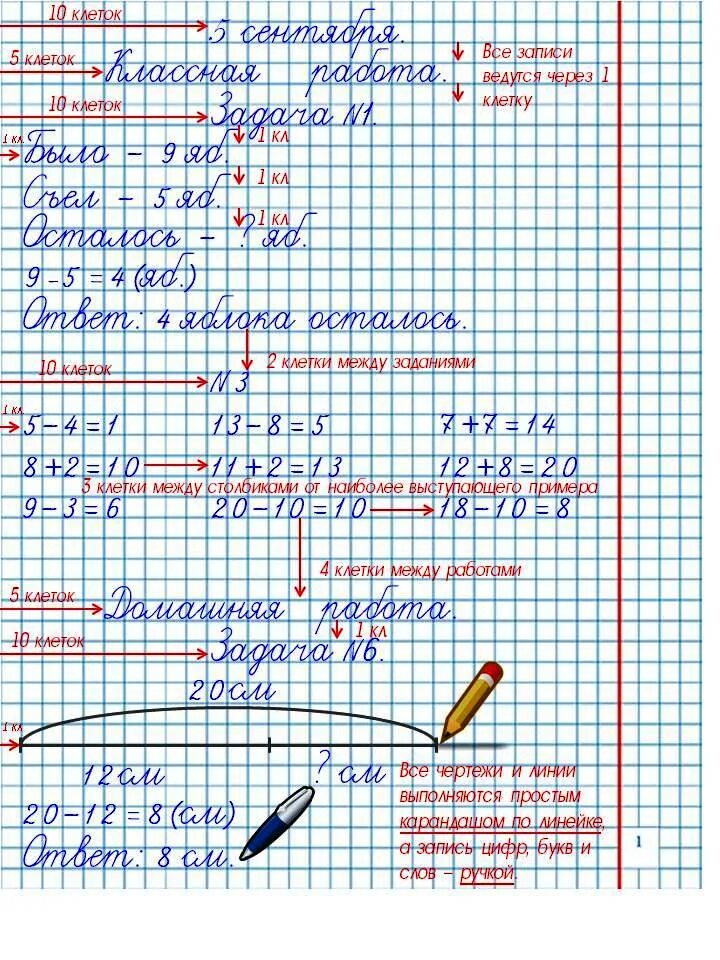 10 клеток
5 сентября.
5 клеток
Классная работа.
Все записи
ведутся через 1
клетку
10 клеток
Задача N1.
1 кл.
1 кл
Было - 9 яб.
1 кл
Съел - 5 яб.
1 кл
Осталось - ? яб.
9 - 5 = 4 (яб.)
Ответ: 4 яблока осталось.
2 клетки между заданиями
10 клеток
N 3
1 кл
5 - 4 = 1 13 - 8 = 5 7 + 7 = 14
8 + 2 = 10 11 + 2 = 13 12 + 8 = 20
3 клетки между столбиками от наиболее выступающего примера
9 - 3 = 6 20 - 10 = 10 18 - 10 = 8
4 клетки между работами
5 клеток
Домашняя работа.
1 кл
10 клеток
Задача N6.
20 см
1 кл
12 см ? см
20 - 12 = 8 (см)
Ответ: 8 см.
Все чертежи и линии
выполняются простым
карандашом по линейке,
а запись цифр, букв и
слов - ручкой.
1